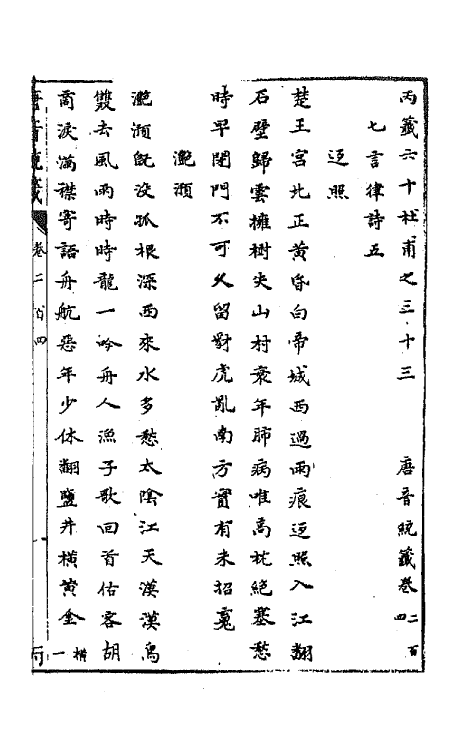 丙籤六十杜甫之三十三　唐音統籤卷二百四
七言律詩五
返照
楚王宮北正黃昏白帝城西過雨痕返照入江翻
石壁歸雲擁樹失山村衰年肺病唯高枕絕塞愁
時早閉門不可久留豺虎亂南方實有未招魂
灩澦
灩澦既沒孤根深西來水多愁太陰江天漠漠鳥
雙去風雨時時龍一吟舟人漁子歌回首估客胡
商淚滿襟寄語舟航惡年少休翻鹽井橫黃金橫一
唐音統籤　卷二百四